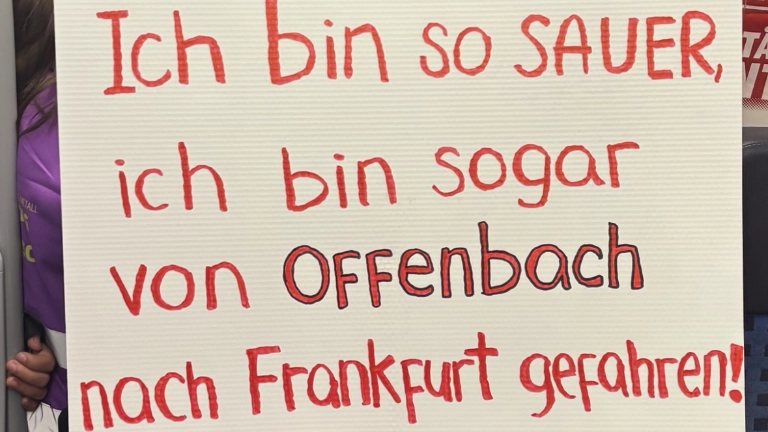 Ich bin so SAUER,
ich bin sogar
von OFFenbach
nach Frankfurt gefahren!